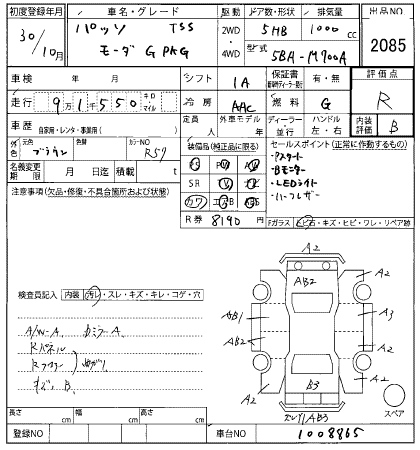 初度登録年月 車名・グレード 駆動 ドア数・形状 排気量 出品NO
30/10月 パッソ TSS 2WD 5HB 1000 cc 2085
モーダ G PKG ・ 4WD 型式 5BA-M700A
車検 年 月 シフト IA 保証書 有・無 評価点
走行 9万1千550 キロ・マイル 冷房 AAC 燃料 G R
車歴 自家用・レンタ・事業用( ) 定員 人 外車モデル 年 ディーラー 並行 ハンドル 左・右 内装評価 B
外色 元色 ブラウン 色替 カラーNO R59 装備品(純正品に限る) セールスポイント(正常に作動するもの)
名義変更期限 月 日迄 積載 t PS PW AW
・Pスタート
・Bモニター
・LEDライト
・ハーフレザー
注意事項(欠品・修復・不具合箇所および状態) SR TV ナビ
カワ エアB ABS
R券 8190円
Fガラス 飛石・キズ・ヒビ・ワレ・リペア跡
A2
AB2
A2
A2
AB1
A3
AB2
A2
B3
A2
A2
AB3
スペア
検査員記入 内装 汚レ・スレ・キズ・キレ・コゲ・穴
A/W-A カミラーA
Rパネル
Rフロアー
キズ、B
長さ cm 幅 cm 高さ cm
登録NO 車台NO 1008865